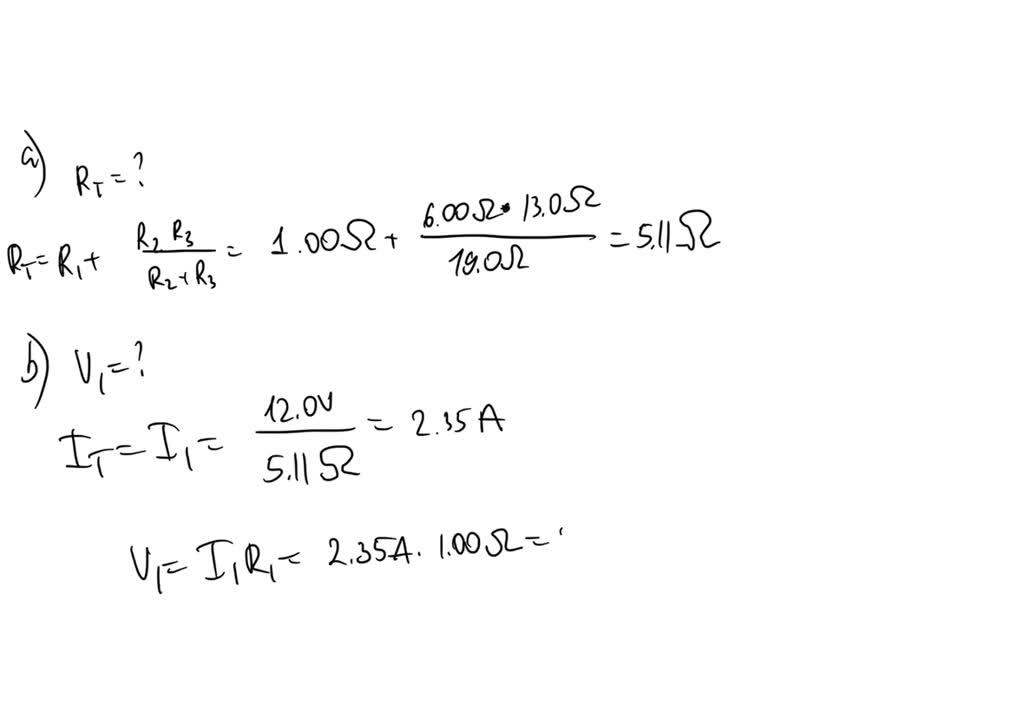 a) R_T = ?
R_T = R_1 + \frac{R_2 R_3}{R_2 + R_3} = 1.00Ω + \frac{6.00Ω • 13.0Ω}{19.0Ω} = 5.11Ω
b) V_1 = ?
I_T = I_1 = \frac{12.0V}{5.11Ω} = 2.35A
V_1 = I_1 R_1 = 2.35A . 1.00Ω =